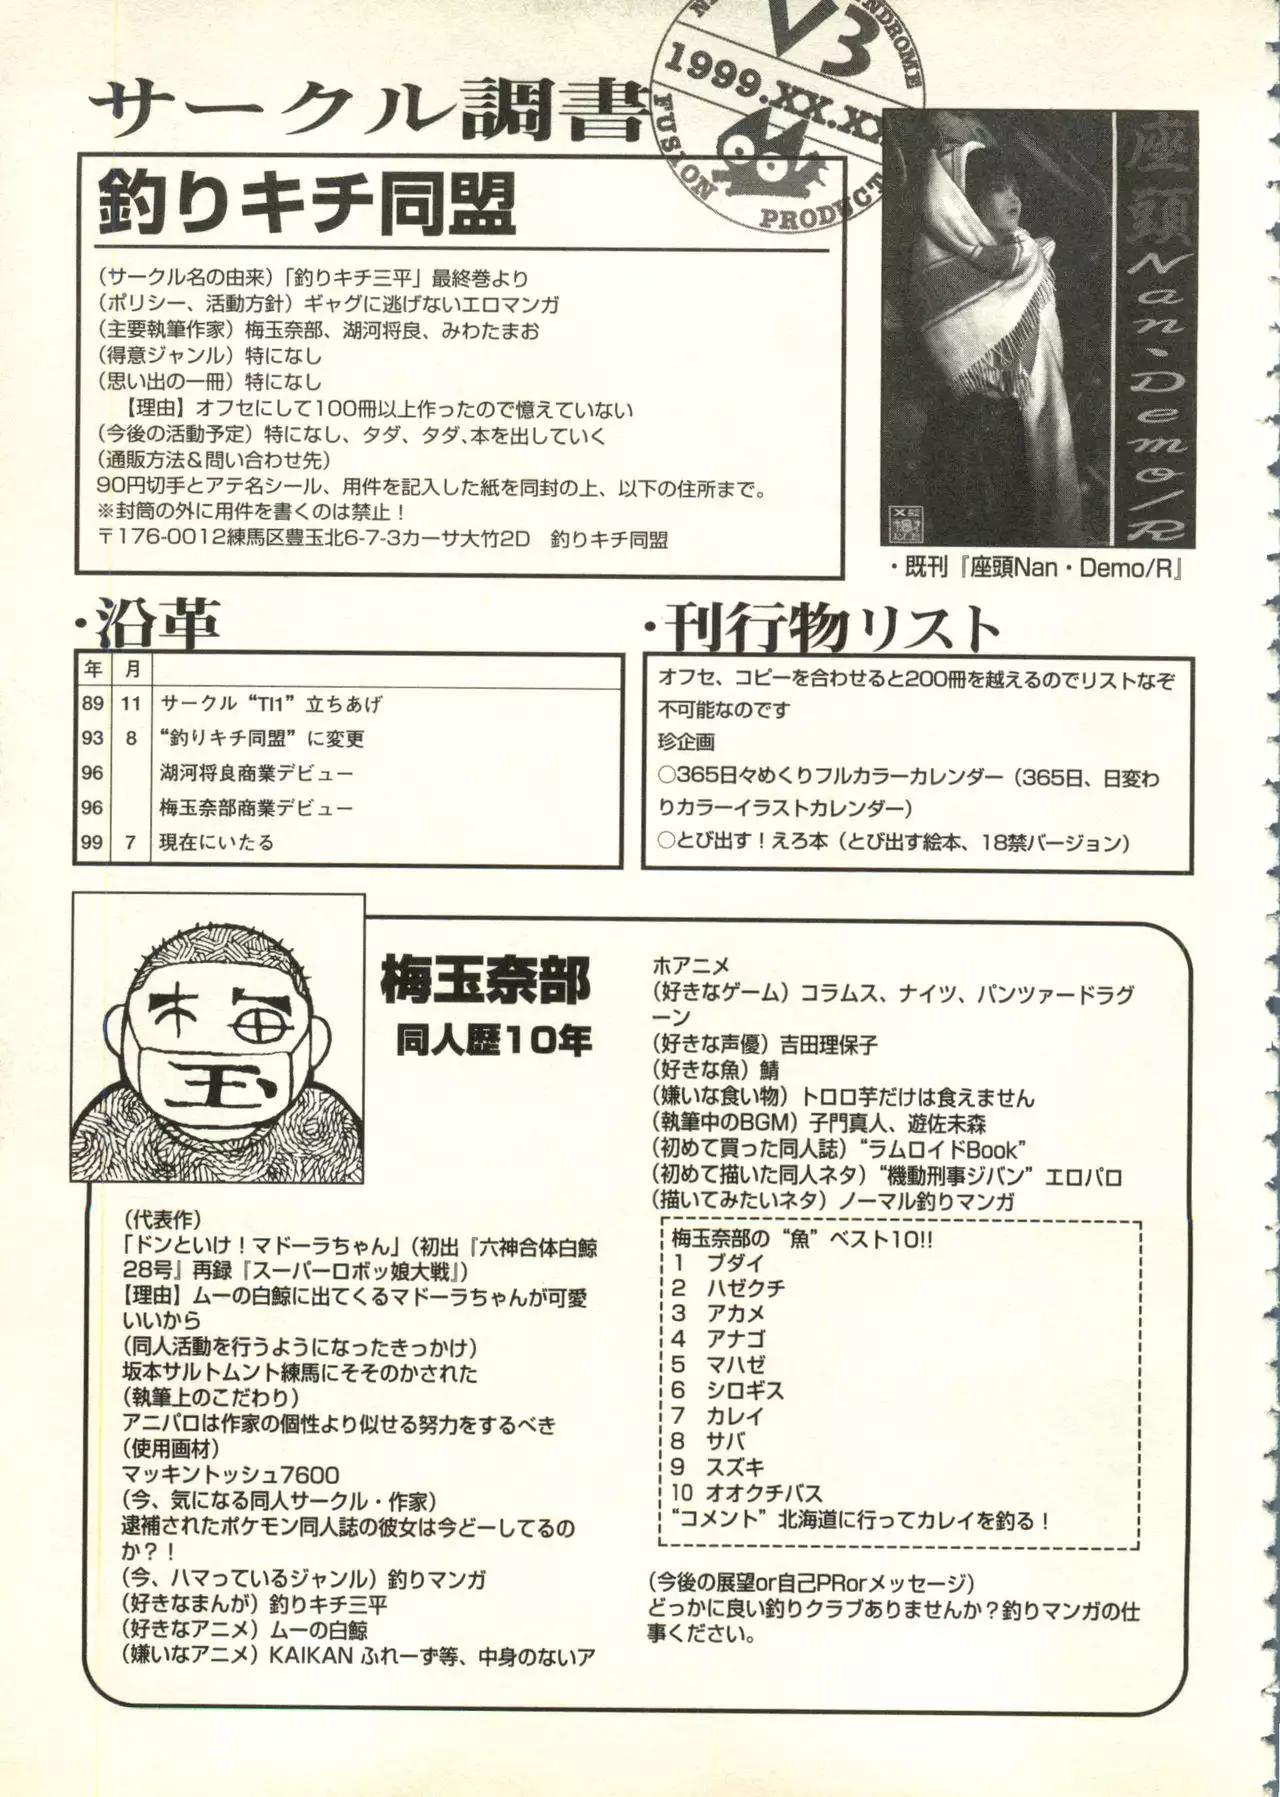 サークル調書
V3
1999.XX.XX
NDROME
FUSION PRODUCT
釣りキチ同盟
（サークル名の由来）「釣りキチ三平」最終巻より
（ポリシー、活動方針）ギャグに逃げないエロマンガ
（主要執筆作家）梅玉奈部、湖河将良、みわたまお
（得意ジャンル）特になし
（思い出の一冊）特になし
【理由】オフセにして100冊以上作ったので憶えていない
（今後の活動予定）特になし、タダ、タダ、本を出していく
（通販方法＆問い合わせ先）
90円切手とアテ名シール、用件を記入した紙を同封の上、以下の住所まで。
※封筒の外に用件を書くのは禁止！
〒176-0012練馬区豊玉北6-7-3カーサ大竹2D　釣りキチ同盟
座頭Nan・Demo/R
・既刊『座頭Nan・Demo/R』
・沿革
年　月
89　11　サークル“TI1”立ちあげ
93　8　“釣りキチ同盟”に変更
96　湖河将良商業デビュー
96　梅玉奈部商業デビュー
99　7　現在にいたる
・刊行物リスト
オフセ、コピーを合わせると200冊を越えるのでリストなぞ
不可能なのです
珍企画
○365日々めくりフルカラーカレンダー（365日、日変わ
りカラーイラストカレンダー）
○とび出す！えろ本（とび出す絵本、18禁バージョン）
梅
玉
梅玉奈部
同人歴10年
（代表作）
「ドンといけ！マドーラちゃん」（初出『六神合体白鯨
28号』再録『スーパーロボッ娘大戦』）
【理由】ムーの白鯨に出てくるマドーラちゃんが可愛
いいから
（同人活動を行うようになったきっかけ）
坂本サルトムント練馬にそそのかされた
（執筆上のこだわり）
アニパロは作家の個性より似せる努力をするべき
（使用画材）
マッキントッシュ7600
（今、気になる同人サークル・作家）
逮補されたポケモン同人誌の彼女は今どーしてるの
か？！
（今、ハマっているジャンル）釣りマンガ
（好きなまんが）釣りキチ三平
（好きなアニメ）ムーの白鯨
（嫌いなアニメ）KAIKAN ふれーず等、中身のないア
ホアニメ
（好きなゲーム）コラムス、ナイツ、パンツァードラグ
ーン
（好きな声優）吉田理保子
（好きな魚）鯖
（嫌いな食い物）トロロ芋だけは食えません
（執筆中のBGM）子門真人、遊佐未森
（初めて買った同人誌）“ラムロイドBook”
（初めて描いた同人ネタ）“機動刑事ジバン”エロパロ
（描いてみたいネタ）ノーマル釣りマンガ
梅玉奈部の“魚”ベスト10!!
1　ブダイ
2　ハゼクチ
3　アカメ
4　アナゴ
5　マハゼ
6　シロギス
7　カレイ
8　サバ
9　スズキ
10　オオクチバス
“コメント”北海道に行ってカレイを釣る！
（今後の展望or自己PRorメッセージ）
どっかに良い釣りクラブありませんか？釣りマンガの仕
事ください。